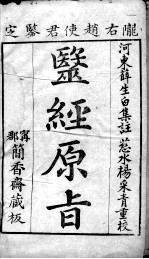 隴右趙使君鑒定
河東薛生白集註 慈水楊采青重校
毉經原旨
寗郡簡香齋藏板